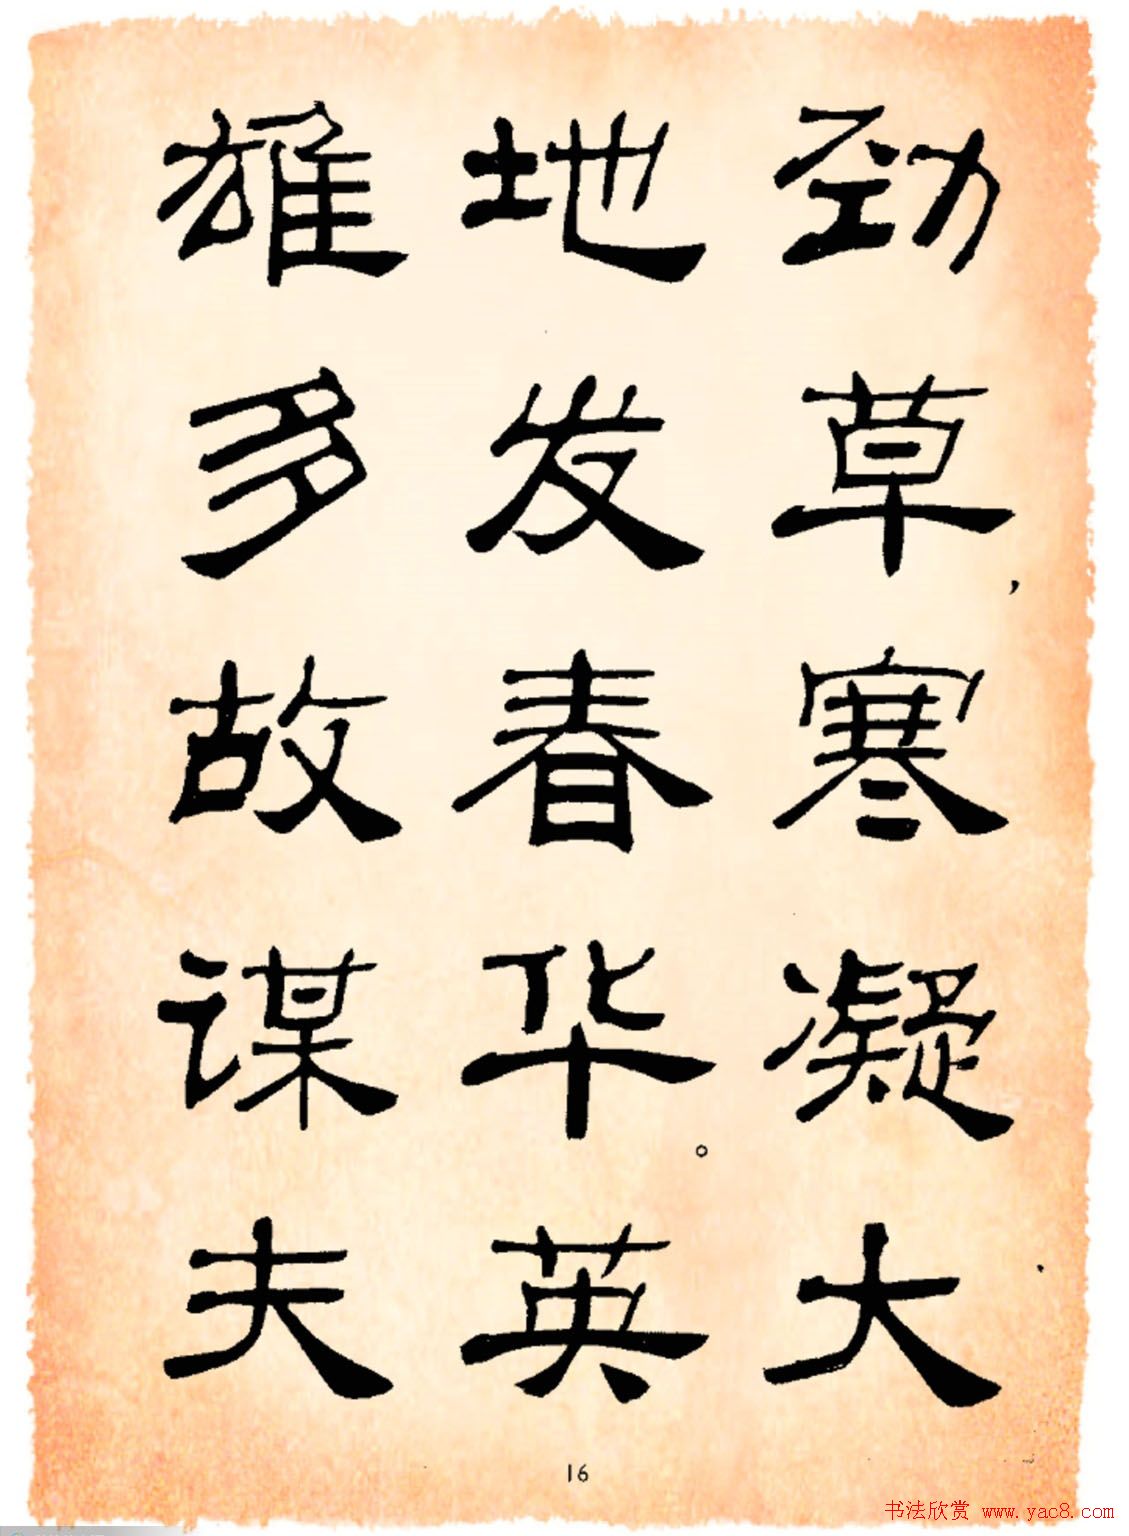 劲草，寒凝大
地发春华。英
雄多故谋夫
16
书法欣赏 www.yac8.com